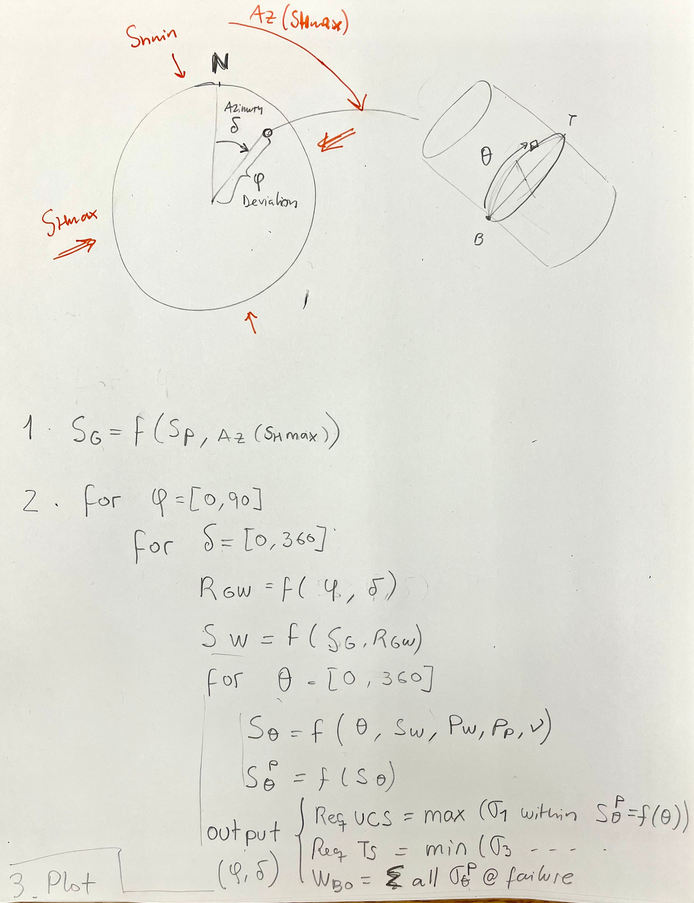 Az (SHmax)
Shmin
N
Azimuth
δ
T
θ
φ
Deviation
SHmax
B
1. SG = f(Sp, Az(SHmax))
2. for φ = [0,90]
for δ = [0,360]
RGW = f(φ, δ)
SW = f(SG, RGW)
for θ = [0,360]
Sθ = f(θ, SW, PW, Pp, ν)
Sθ^P = f(Sθ)
output
(φ, δ)
Req UCS = max (σ1 within Sθ^P = f(θ))
Req TS = min (σ3 - - - .
WBO = Σ all σθ^P @ failure
3. Plot